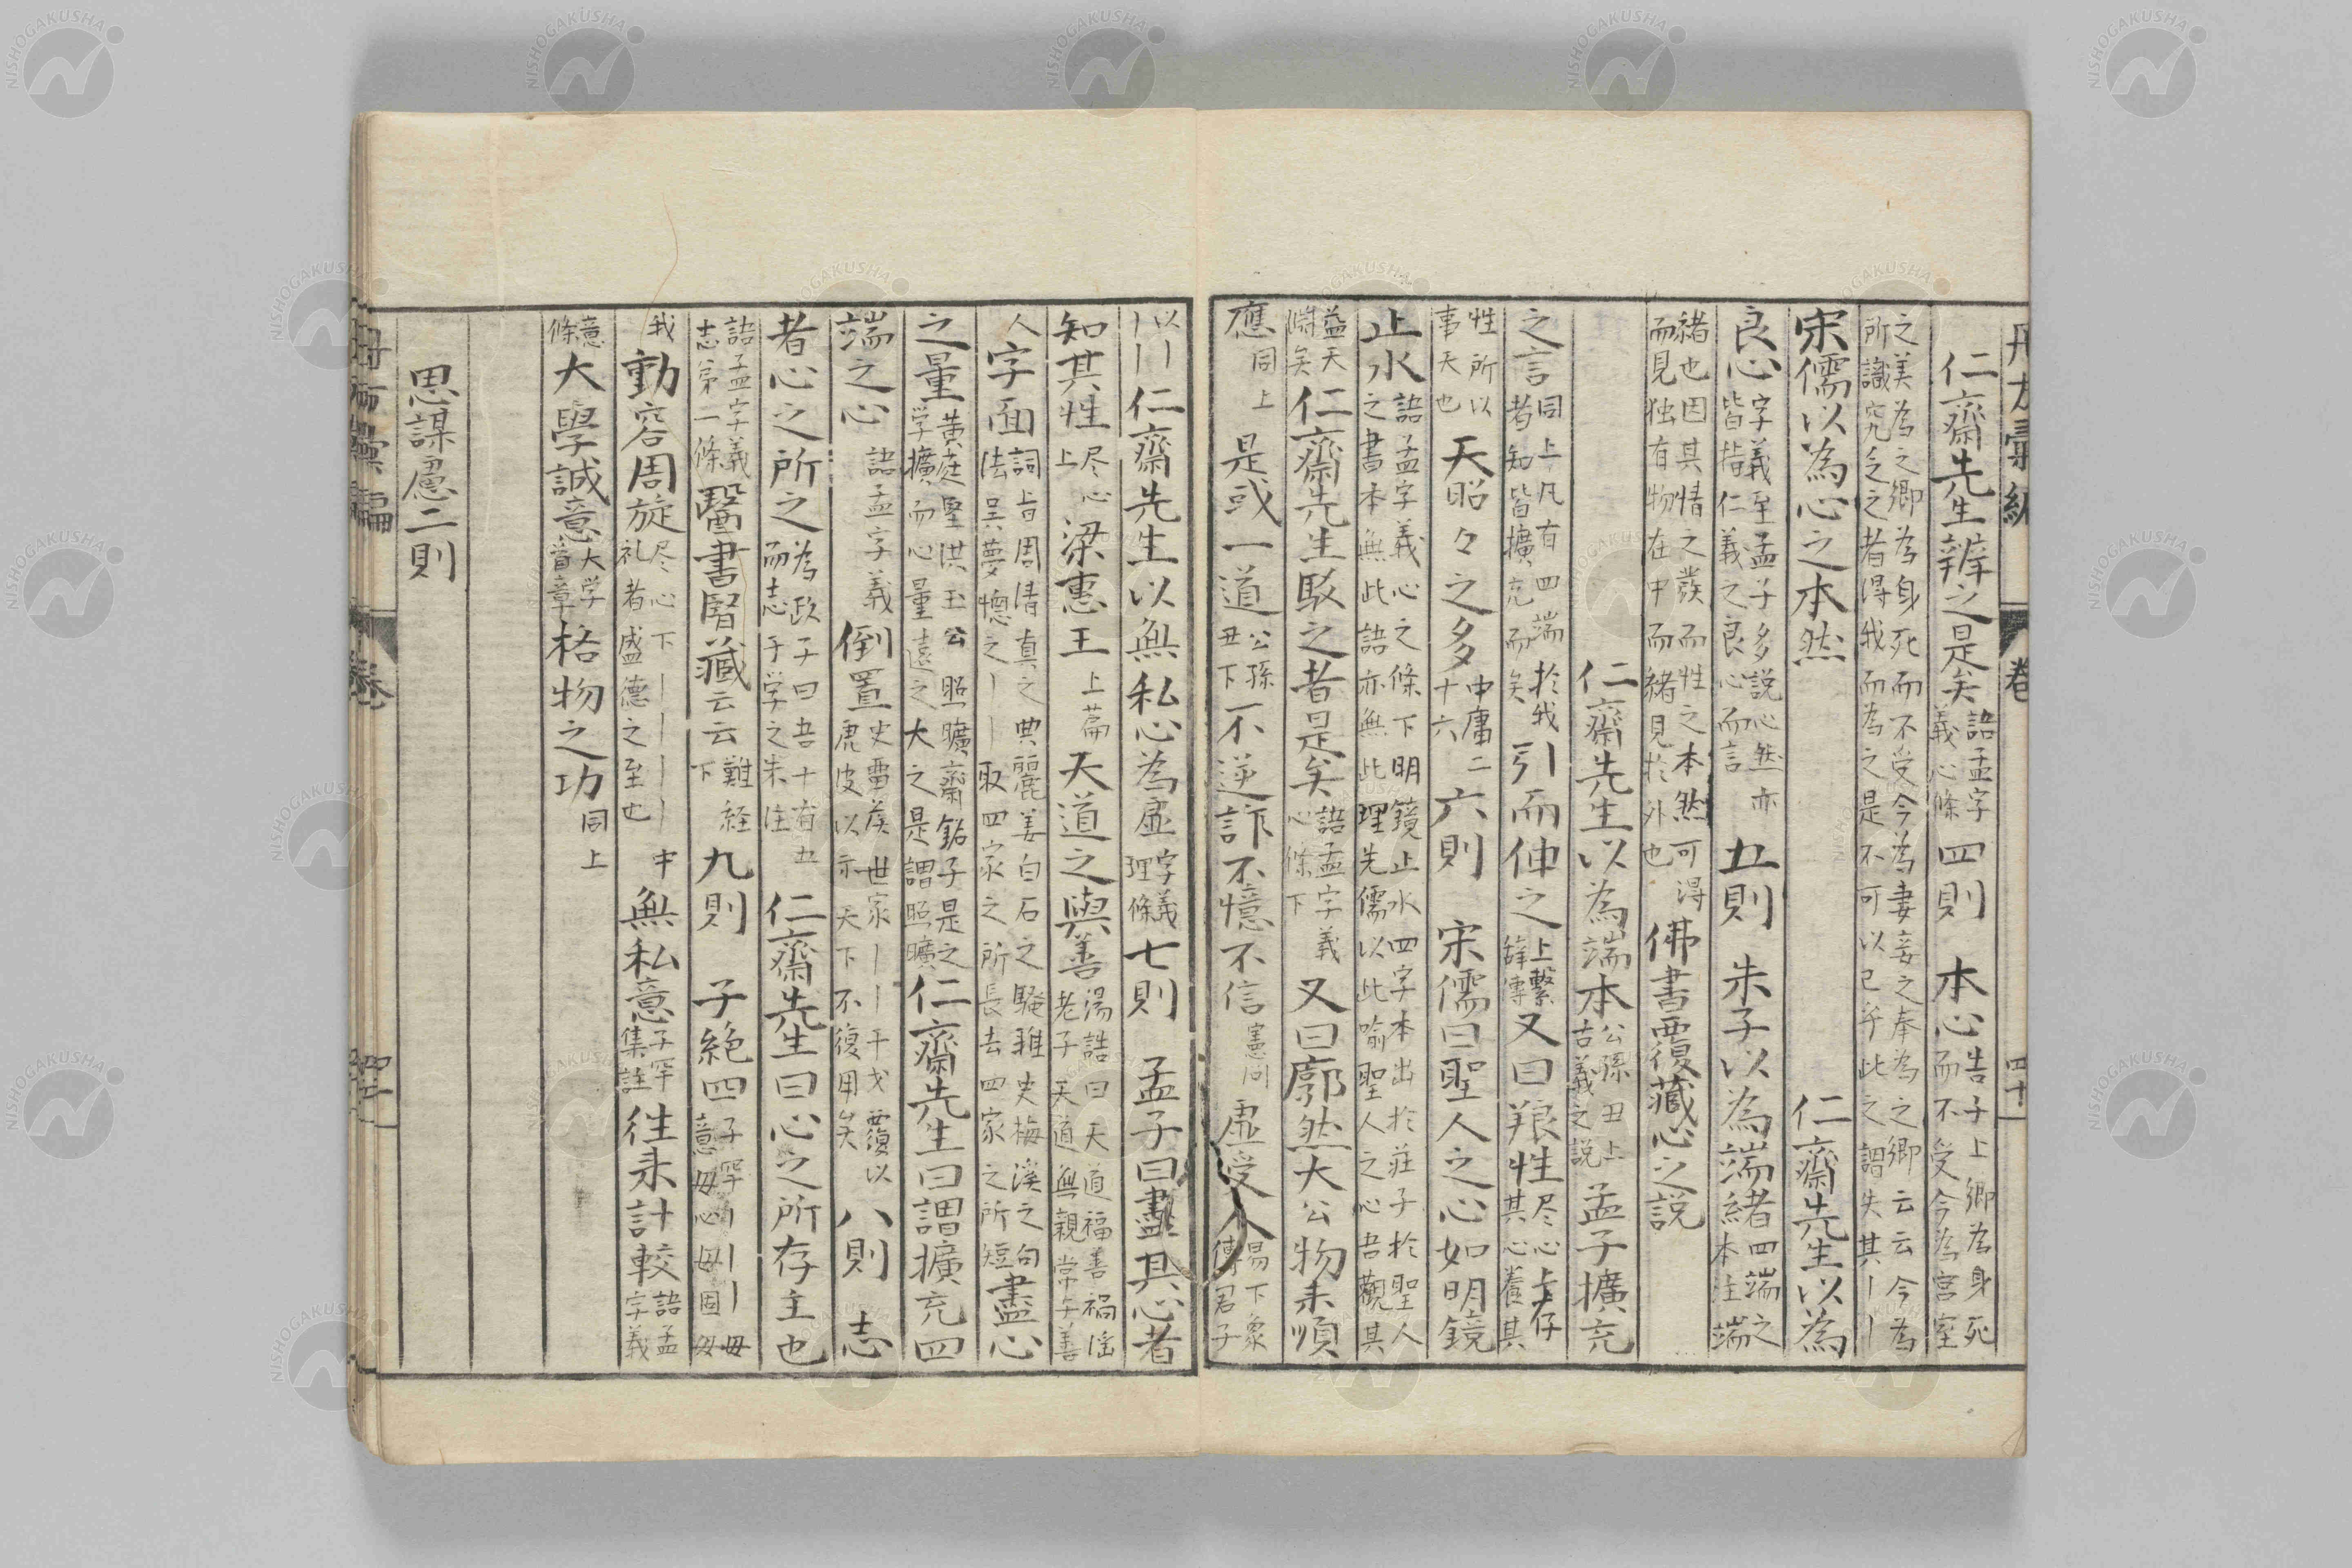 仁齋先生辨之是矣
語孟字
義心條
四則　本心
告子上鄉為身死
而不受今為宮室
之美為之鄉為身死而不受今為妻妾之奉為之鄉云云今為
所識究乏之者得我而為之是不可以已乎此之謂失其〡〡
宋儒以為心之本然　仁齋先生以為
良心
字義至孟子多説心然亦
皆指仁義之良心而言
五則　朱子以為端緒
四端之
本注端
緒也因其情之發而性之本然可得
而見独有物在中而緒見於外也
佛書覆藏心之説
仁齋先生以為端本
公孫丑上
古義之説
孟子擴充
之言
同上凡有四端於我
者知皆擴充而矣
引而伸之
上繫
辭傳
又曰粮性
尽心上存
其心養其
性所以
事天也
天昭々之多
中庸二
十六
六則　宋儒曰聖人之心如明鏡
止水
語孟字義心之條下明鏡止水四字本出於莊子於聖人
之書本無此語亦無此理先儒以此喻聖人之心吾觀其
益天
淵矣
仁齋先生駁之者是矣
語孟字義
心條下
又曰廓然大公物来順
應
同上
是或一道
公孫
丑下
不逆詐不憶不信
憲問
虛受人
易下象
傳君子
以〡
〡〡
仁齋先生以無私心為虛
字義
理條
七則　孟子曰盡其心者
知其性
尽心
上
梁惠王
上篇
天道之與善
湯誥曰天道福善禍淫
老子天道無親常与善
人字面
詞旨周清真之典麗姜白石之騷雅史梅溪之句
法呉夢窓之〡〡取四家之所長去四家之所短
盡心
之量
黄庭堅洪玉公昭曠齋銘子是之
学擴而心量遠之大之是謂昭曠
仁齋先生曰謂擴充四
端之心
語孟字義
倒置
史畱矦世家〡〡干戈覆以
虎皮以示天下不復用矣
八則　志
者心之所之
為政子曰吾十有五
而志于学之朱注
仁齋先生曰心之所存主也
語孟字義
志第二條
醫書腎藏云云
難経
下
九則　子絶四
子罕〡〡〡毋
意毋心毋固毋
我
動容周旋
尽心下〡〡〡〡中
礼者盛德之至也
無私意
子罕
集註
徃来計較
語孟
字義
意
條
大學誠意
大学
首章
格物之功
同上
思謀慮二則